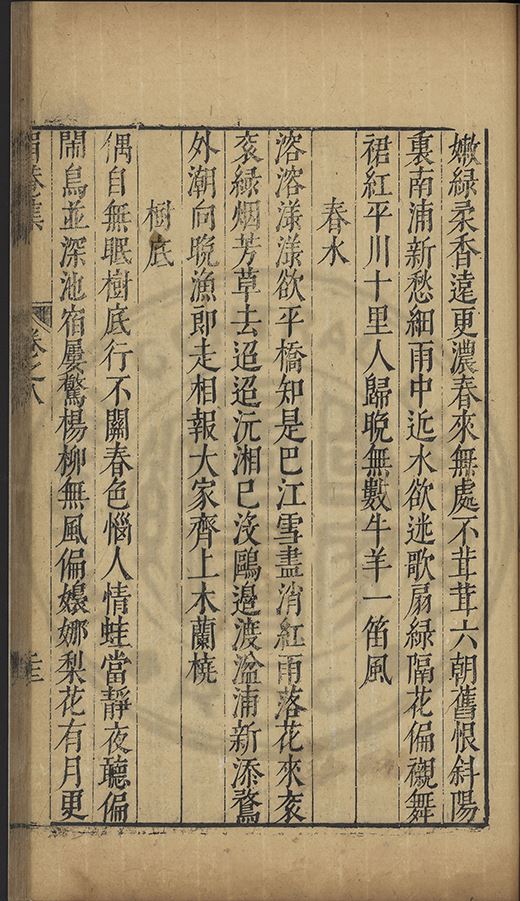 嫩綠柔香遠更濃春來無處不茸茸六朝舊恨斜陽
裏南浦新愁細雨中近水欲迷歌扇綠隔花偏襯舞
裙紅平川十里人歸晚無數牛羊一笛風
春水
溶溶漾漾欲平橋知是巴江雪盡消紅雨落花來衮
衮綠烟芳草去迢迢沅湘已沒鷗邊渡湓浦新添鷺
外潮向晚漁郎走相報大家齊上木蘭橈
樹底
偶自無眠樹底行不關春色惱人情蛙當靜夜聽偏
鬧鳥並深池宿屢驚楊柳無風偏嬝娜梨花有月更
眉菴集 卷之八